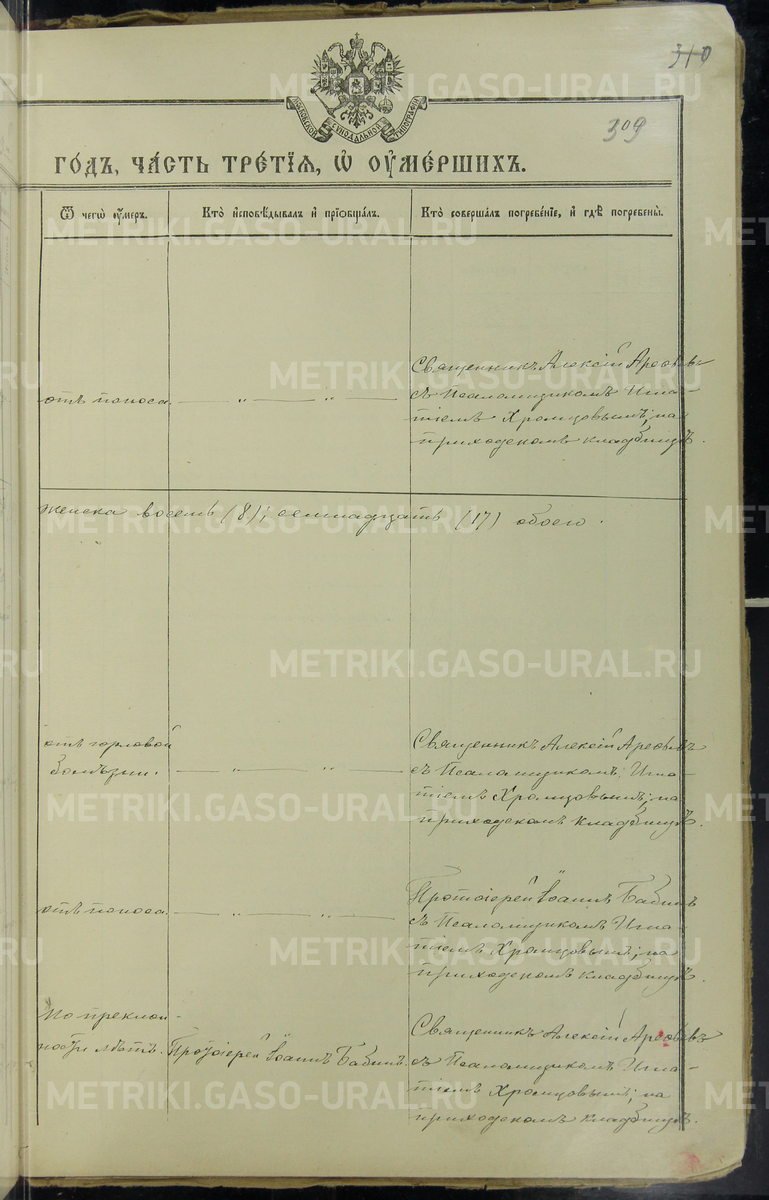 310
309
МОСКОВСКОЙ СѴНОДАЛЬНОЙ ТИПОГРАФІИ
ГО́ДЪ, ЧА́СТЬ ТРЕ́ТІЯ, Ѡ҆ ОУ҆МЕ́РШИХЪ.
Ѿ чегѡ̀ оу҆́меръ.
Кто̀ и҆сповѣ́дывалъ и҆ прїѡбща́лъ.
Кто̀ соверша́лъ погребе́нїе, и҆ гдѣ̀ погребены̀.
отъ поноса.
— „ — „ —
Священникъ Алексій Арефьевъ
съ Псаломщикомъ Игна-
тіемъ Хромцовымъ; на
приходскомъ кладбищѣ.
женска восемь (8); семнадцать (17) обоего.
отъ горловой
болѣзни.
— „ — „ —
Священникъ Алексій Арефьевъ
съ Псаломщикомъ Игна-
тіемъ Хромцовымъ; на
приходскомъ кладбищѣ.
отъ поноса.
— „ — „ —
Протоіерей Іоаннъ Бабинъ
съ Псаломщикомъ Игна-
тіемъ Хромцовымъ; на
приходскомъ кладбищѣ.
По преклон-
ности лѣтъ.
Протоіерей Іоаннъ Бабинъ.
Священникъ Алексій Арефьевъ
съ Псаломщикомъ Игна-
тіемъ Хромцовымъ; на
приходскомъ кладбищѣ.
METRIKI.GASO-URAL.RU